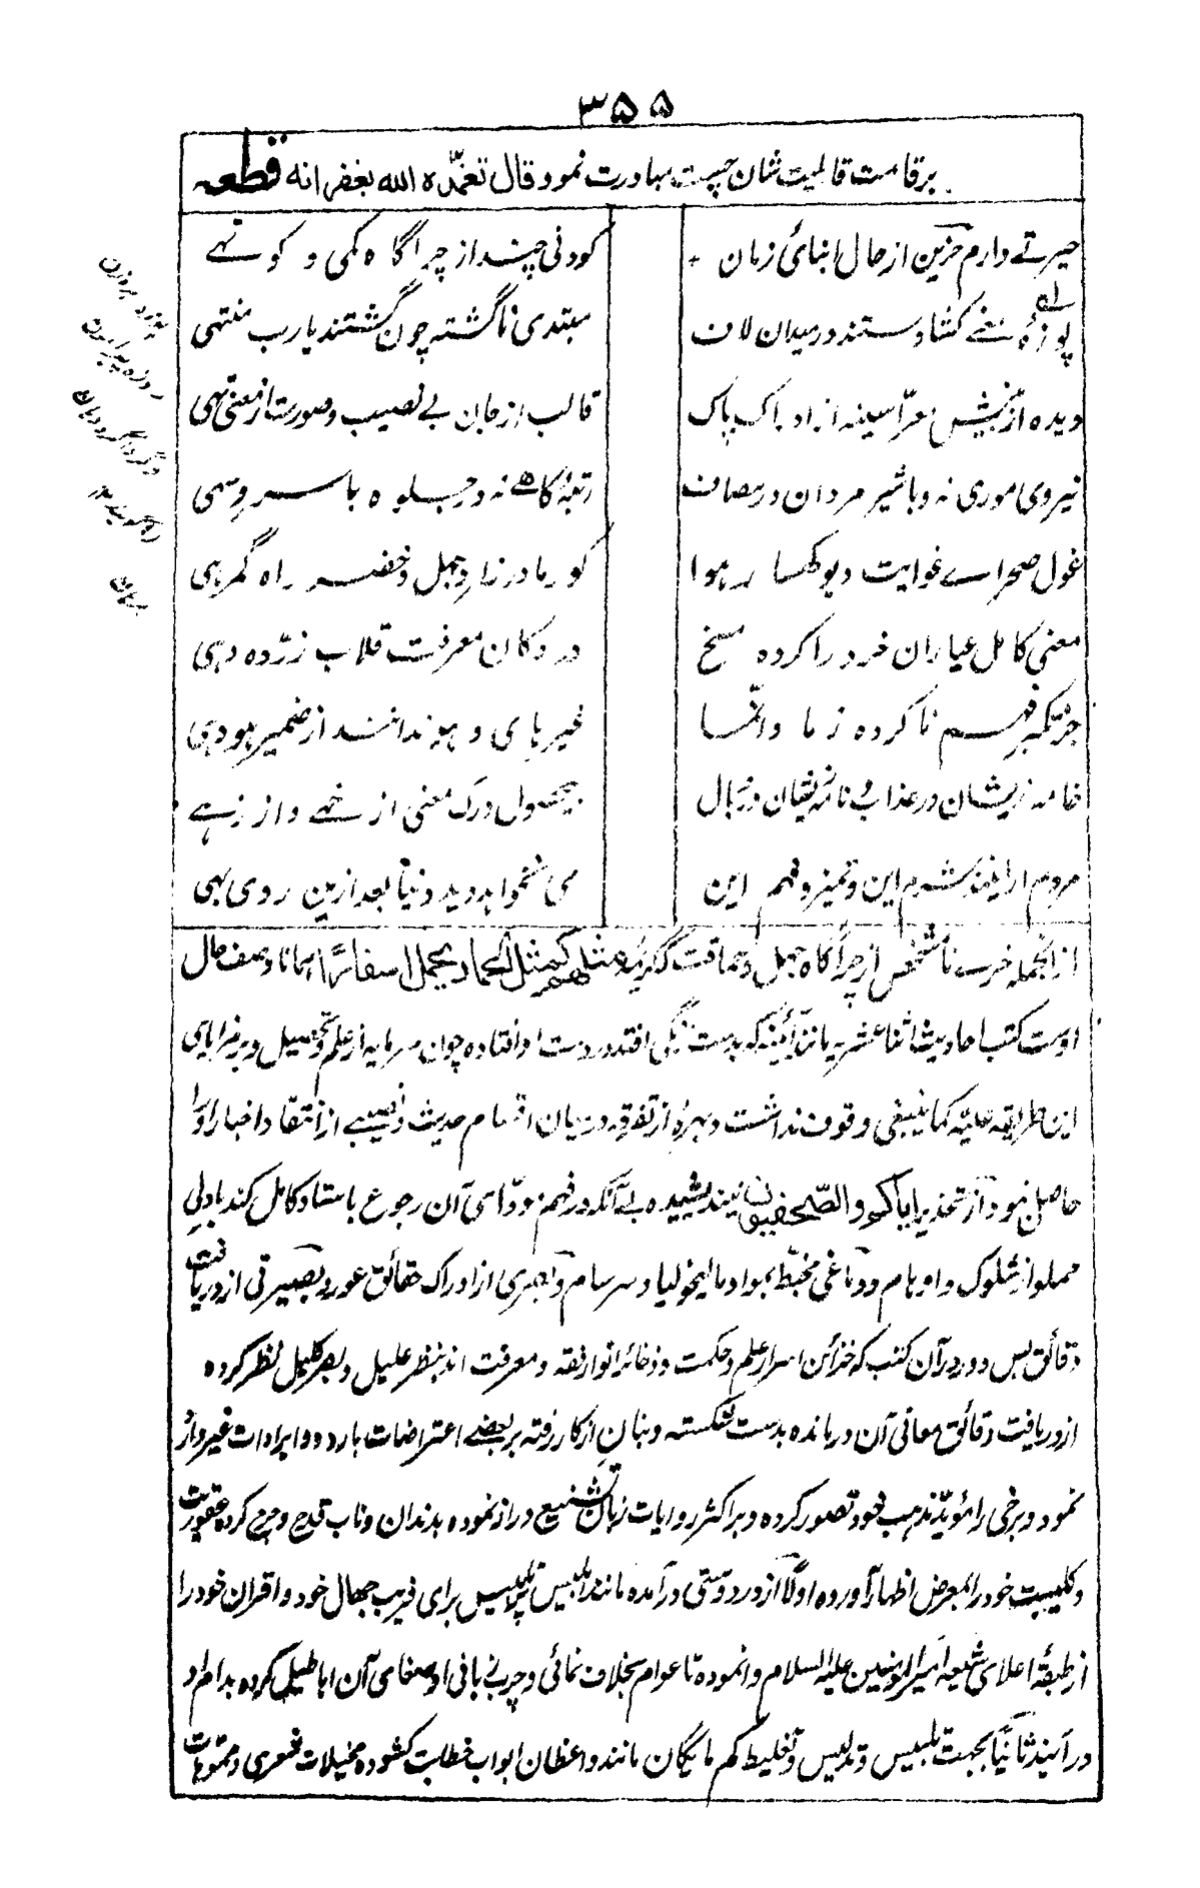 ۳۵۵
بر قامت قابلیت شان چست مبادرت نمود قال تغمّده الله بغفرانه قطعه
حیرتے دارم حزین از حال ابنائ زمان
کودنی چند از چراگاه کمی و کوتهے
پوزهٔ سعنے کشادستند در میدان لاف
مبتدی ناگشته چون گشتند یارب منتهی
دیده از بینش معرّا سینه از ادراک پاک
قالب از جان بے نصیب و صورت از معنی تهی
نیروی موری نه و با شیر مردان در مصاف
رتبهٔ کاهے نه در جلوه با سرو سهی
غول صحراے غوایت دیو کهسار هوا
کور مادرزاد جهل و خضر راه گمرهی
معنی کامل عیاران خرد را کرده مسخ
در دکان معرفت قلاب زرّ ده دهی
جز تکبر فهم نا کرده ز ما و انّما
غیر های و هو ندانند از ضمیر هو دهی
خامه زیشان در عذاب و نامه زیشان در وبال
بیحصول درک معنی از خهے و از زهے
مردم ار اینند شرم این و تمیز و فهم این
می نخواهد دید دنیا بعد ازین روی بهی
از انجمله خرے نامشخص از چراگاه جهل و حماقت که کریمه مثلهم کمثل الحمار یحمل اسفارًا همانا وصف حال
اوست کتب احادیث اثنا عشریه مانند آئینه که بدست زنگی افتد در دست او افتاده چون سرمایه از علم و تحصیل و بر مزایای
این طریقه علیّه کما ینبغی وقوف نداشت و بهرهٔ از تفرقه درمیان اقسام حدیث و نصیبے از انتقاد اخبار او را
حاصل نبود از تحذیر ایاکم و الصّحفیون نیندیشیده بے آنکه در فهم مودّاسی آن رجوع باستاد کامل کند با دلی
مملو از شکوک و اوهام و دماغی مخبّط بمواد مالیخولیا و سرسام و بصری از ادراک حقائق عور و بصیرتی از دریافت
دقائق بس دور در آن کتب که خزائن اسرار علم و حکمت و ذخائر انوار فقه و معرفت اند بنظر علیل و بصر کلیل نظر کرده
از دریافت دقائق معانی آن در مانده بدست شکسته و بنان از کار رفته بر بعضے اعتراضات بارده و ایرادات غیر وارد
نمود و برخی را مؤیّد مذهب خود تصور کرده و بر اکثر روایات زبان تشنیع دراز نموده بدندان و ناب قدح و جرح کرده عقوریت
و کلبیت خود را بمعرض اظهار آورده اولًا از در دوستی در آمده مانند ابلیس پر تلبیس برای فریب جهال خود و اقران خود را
از طبقهٔ اعلای شیعه امیر المومنین علیه السلام وانموده تا عوام بخلاف نمائی و چرب زبانی او صغای آن اباطیل کرده بدام او
در آیند ثانیًا بجهت تلبیس و تدلیس و تغلیط کم مایگان مانند واعظان ابواب خطابت کشوده مخیلات شعری و مموهات